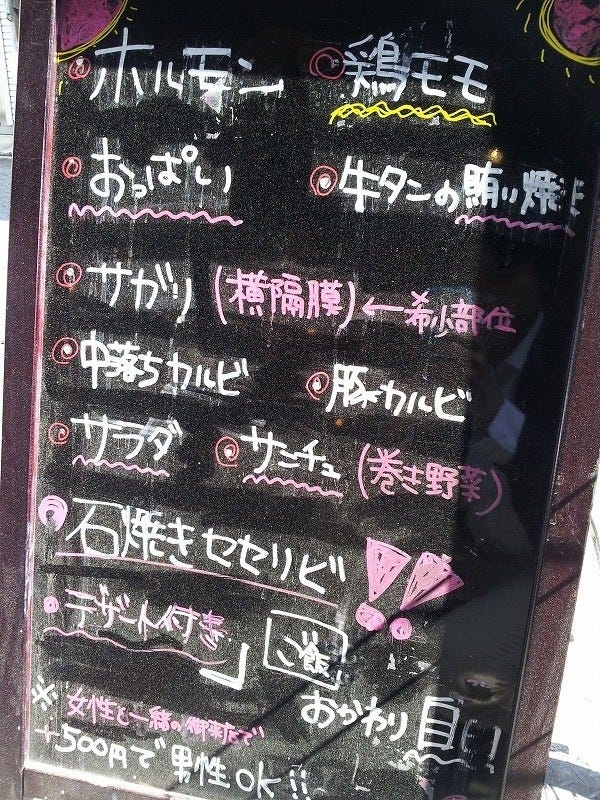 ホルモン 鶏モモ
おっぱい 牛タンの賄い焼き
サガリ(横隔膜)←希少部位
中落ちカルビ 豚カルビ
サラダ サンチュ(巻き野菜)
石焼きセセリビ!!
デザート付き ご飯
おかわり自由
※女性と一緒の御来店で
+500円で男性OK!!